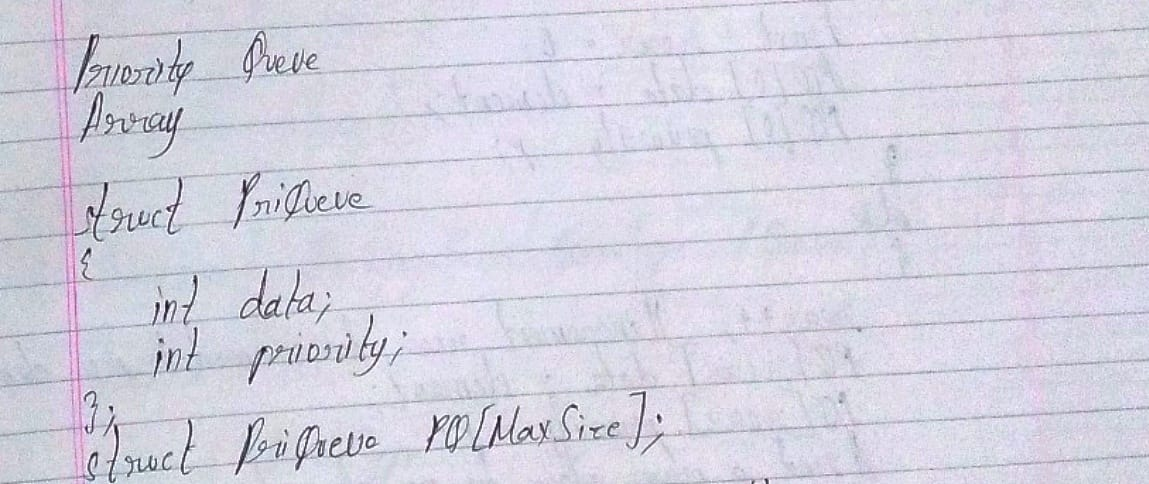 Priority Queue
Array
struct PriQueue
{
int data;
int priority;
};
struct PriQueue PQ[MaxSize];